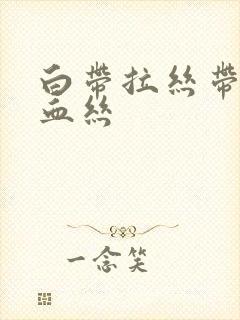 白帶拉絲帶
血絲
一念笑